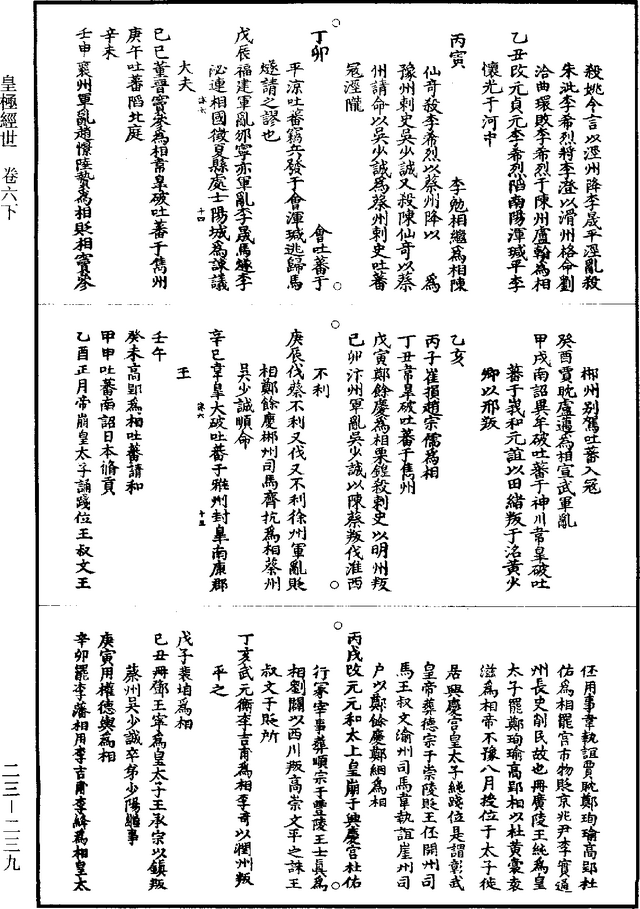 殺姚令言以涇州降李晟平涇亂殺
朱泚李希烈將李澄以滑州格命劉
洽曲環敗李希烈于陳州盧翰為相
乙丑改元貞元李希烈陷南陽渾瑊平李
懷光于河中
丙寅　李勉相繼為相陳
仙奇殺李希烈以蔡州降以　為
豫州刺史吳少誠又殺陳仙奇以蔡
州請命以吳少誠為蔡州刺史吐蕃
冦涇隴
丁卯　會吐蕃于
平涼吐蕃竊兵發于會渾瑊逃歸馬
燧請之謬也
戊辰福建軍亂邠寧亦軍亂李晟馬燧李
泌連相國徵夏縣處士陽城為諫議
大夫
己巳董晉竇參為相韋皐破吐蕃于雋州
庚午吐蕃陷北庭
辛未
壬申襄州軍亂趙憬陸贄為相貶相竇參
郴州别駕吐蕃入冦
癸酉賈耽盧邁為相宣武軍亂
甲戌南詔異牟破吐蕃于神川韋皐破吐
蕃于峩和元誼以田緒叛于洺黄少
卿以邪叛
乙亥
丙子崔損趙宗儒為相
丁丑韋皐破吐蕃于雋州
戊寅鄭餘慶為相栗鍠殺刺史以明州叛
己卯汴州軍亂吳少誠以陳蔡叛伐淮西
不利
庚辰伐蔡不利又伐又不利徐州軍亂貶
相鄭餘慶郴州司馬齊抗為相蔡州
吳少誠順命
辛巳韋皐大破吐蕃于雅州封皐南康郡
王
壬午
癸未高郢為相吐蕃請和
甲申吐蕃南詔日本脩貢
乙酉正月帝崩皇太子誦踐位王叔文王
伾用事韋執誼賈耽鄭珣瑜高郢杜
佑為相罷宫市物貶京兆尹李實通
州長史削民故也冊廣陵王純為皇
太子罷鄭珣瑜高郢相以杜黄裳袁
滋為相帝不豫八月授位于太子徙
居興慶宫皇太子純踐位是謂彰武
皇帝葬德宗于崇陵貶王伾開州司
馬王叔文渝州司馬韋執誼崖州司
户以鄭餘慶鄭絪為相
丙戌改元元和太上皇崩于興慶宫杜佑
行冢宰事葬順宗于豐陵王士真為
相劉闢以西川叛高崇文平之誅王
叔文于貶所
丁亥武元衡李吉甫為相李奇以潤州叛
平之
戊子裴垍為相
己丑冊鄧王寧為皇太子王承宗以鎮叛
蔡州吳少誠卒弟少陽繼事
庚寅用權德輿為相
辛卯罷李藩相用李吉甫李絳為相皇太
皇極經世　卷六下
二三—二三九